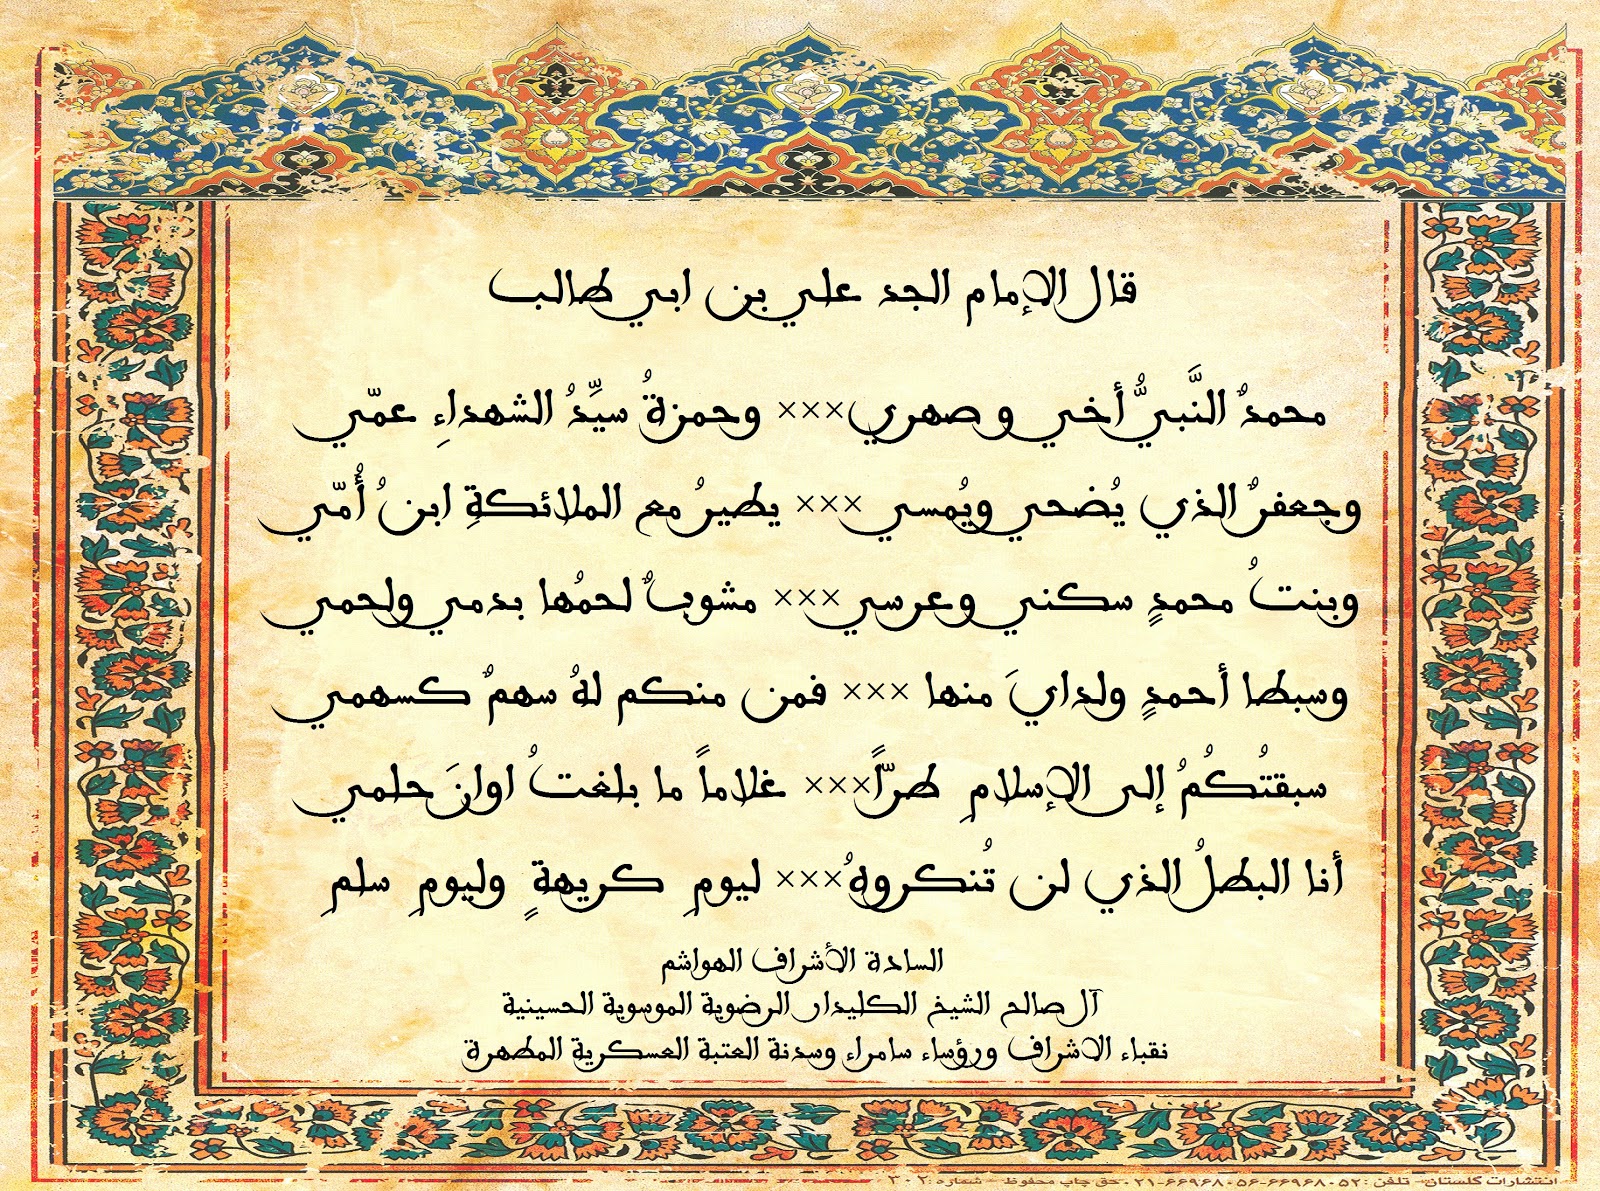 قال الإمام الجد علي بن ابي طالب
محمدٌ النَّبيُّ أخي و صهري××× وحمزةُ سيِّدُ الشهداءِ عمّي
وجعفرٌ الذي يُضحي ويُمسي××× يطيرُ مع الملائكةِ ابنُ أُمّي
وبنتُ محمدٍ سكني وعرسي××× مشوبٌ لحمُها بدمي ولحمي
وسبطا أحمدٍ ولدايَ منها ××× فمن منكم لهُ سهمٌ كسهمي
سبقتُكُمُ إلى الإسلامِ طرّاً××× غلاماً ما بلغتُ اوانَ حلمي
أنا البطلُ الذي لن تُنكروهُ××× ليومِ كريهةٍ وليومِ سلمِ
السادة الأشراف الهواشم
آل صالح الشيخ الكليدار الرضوية الموسوية الحسينية
نقباء الاشراف ورؤساء سامراء وسدنة العتبة العسكرية المطهرة
انتشارات گلستان- تلفن :۶۶۹۶۸۰۵۲-۶۶۹۶۸۰۵۶-۰۲۱ حق چاپ محفوظ - شماره :۳۰۲